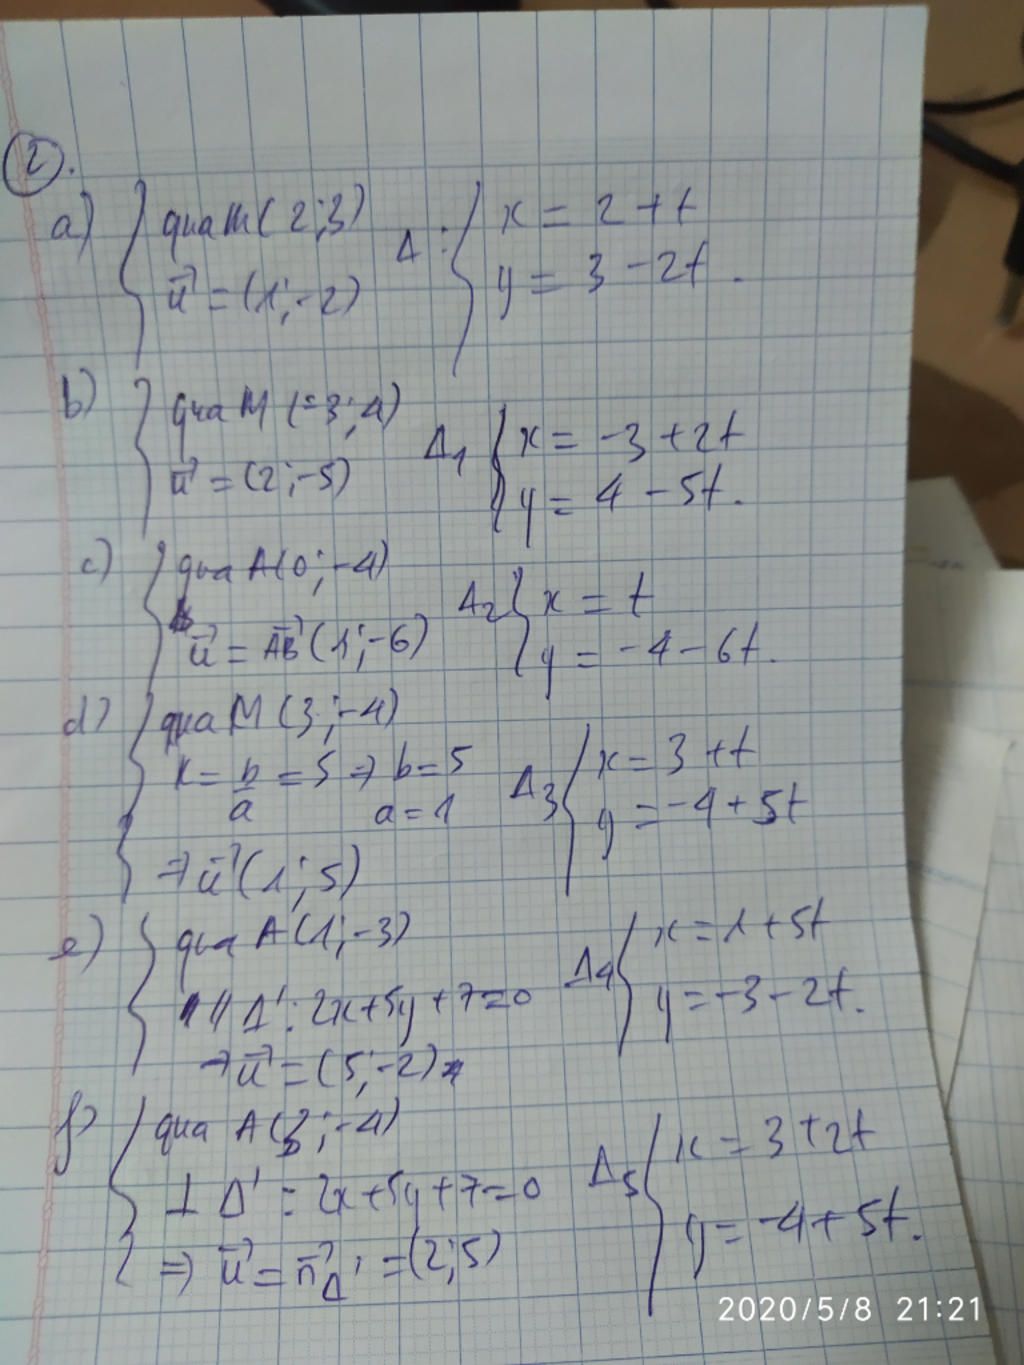 2.
a) { qua M(2;3)
u⃗ = (1;-2)
Δ: { x = 2 + t
y = 3 - 2t.
b) { qua M(-3;4)
u⃗ = (2;-5)
Δ1 { x = -3 + 2t
y = 4 - 5t.
c) { qua A(0;-4)
u⃗ = AB⃗ (1;-6)
Δ2 { x = t
y = -4 - 6t.
d) { qua M(3;-4)
k = b/a = 5 ⇒ b = 5
a = 1
⇒ u⃗ (1;5)
Δ3 { x = 3 + t
y = -4 + 5t
e) { qua A(1;-3)
// Δ': 2x+5y+7=0
→ u⃗ = (5;-2)
Δ4 { x = 1 + 5t
y = -3 - 2t.
f) { qua A(3;-4)
⊥ Δ': 2x+5y+7=0
⇒ u⃗ = n⃗Δ' = (2;5)
Δ5 { x = 3 + 2t
y = -4 + 5t.
2020/5/8 21:21